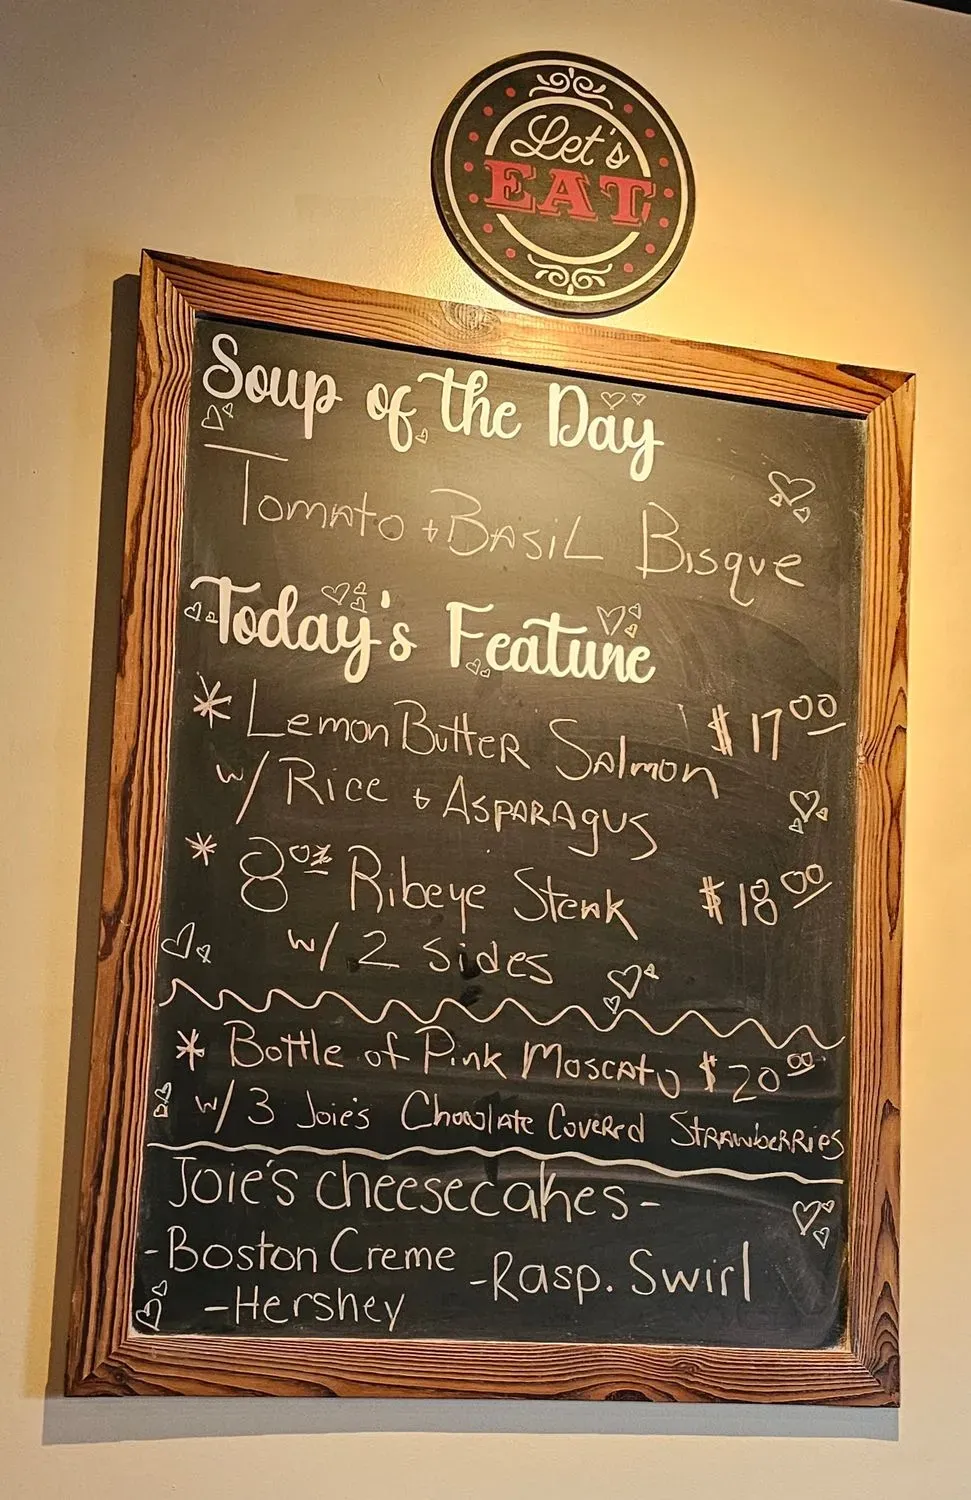 Let's
EAT
Soup of the Day
Tomato + Basil Bisque
Today's Feature
* Lemon Butter Salmon $17.00
w/ Rice + Asparagus
* 8oz Ribeye Steak $18.00
w/ 2 sides
* Bottle of Pink Moscato $20.00
w/ 3 Joie's Chocolate Covered Strawberries
Joie's cheesecakes-
-Boston Creme -Rasp. Swirl
-Hershey